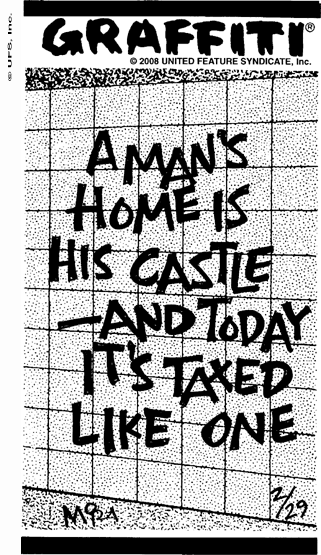 © UFS, Inc.
GRAFFITI®
© 2008 UNITED FEATURE SYNDICATE, Inc.
A MAN'S
HOME IS
HIS CASTLE
—AND TODAY
IT'S TAXED
LIKE ONE
2/29